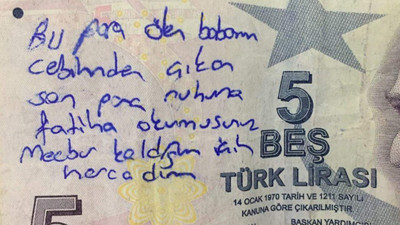 Bu para ölen babamın
cebinden çıkan
son para ruhuna
fatiha okurmusunuz
Mecbur kaldığım için
harcadım
5
BEŞ
TÜRK LİRASI
14 OCAK 1970 TARİH VE 1211 SAYILI
KANUNA GÖRE ÇIKARILMIŞTIR.
BAŞKAN YARDIMCISI
5